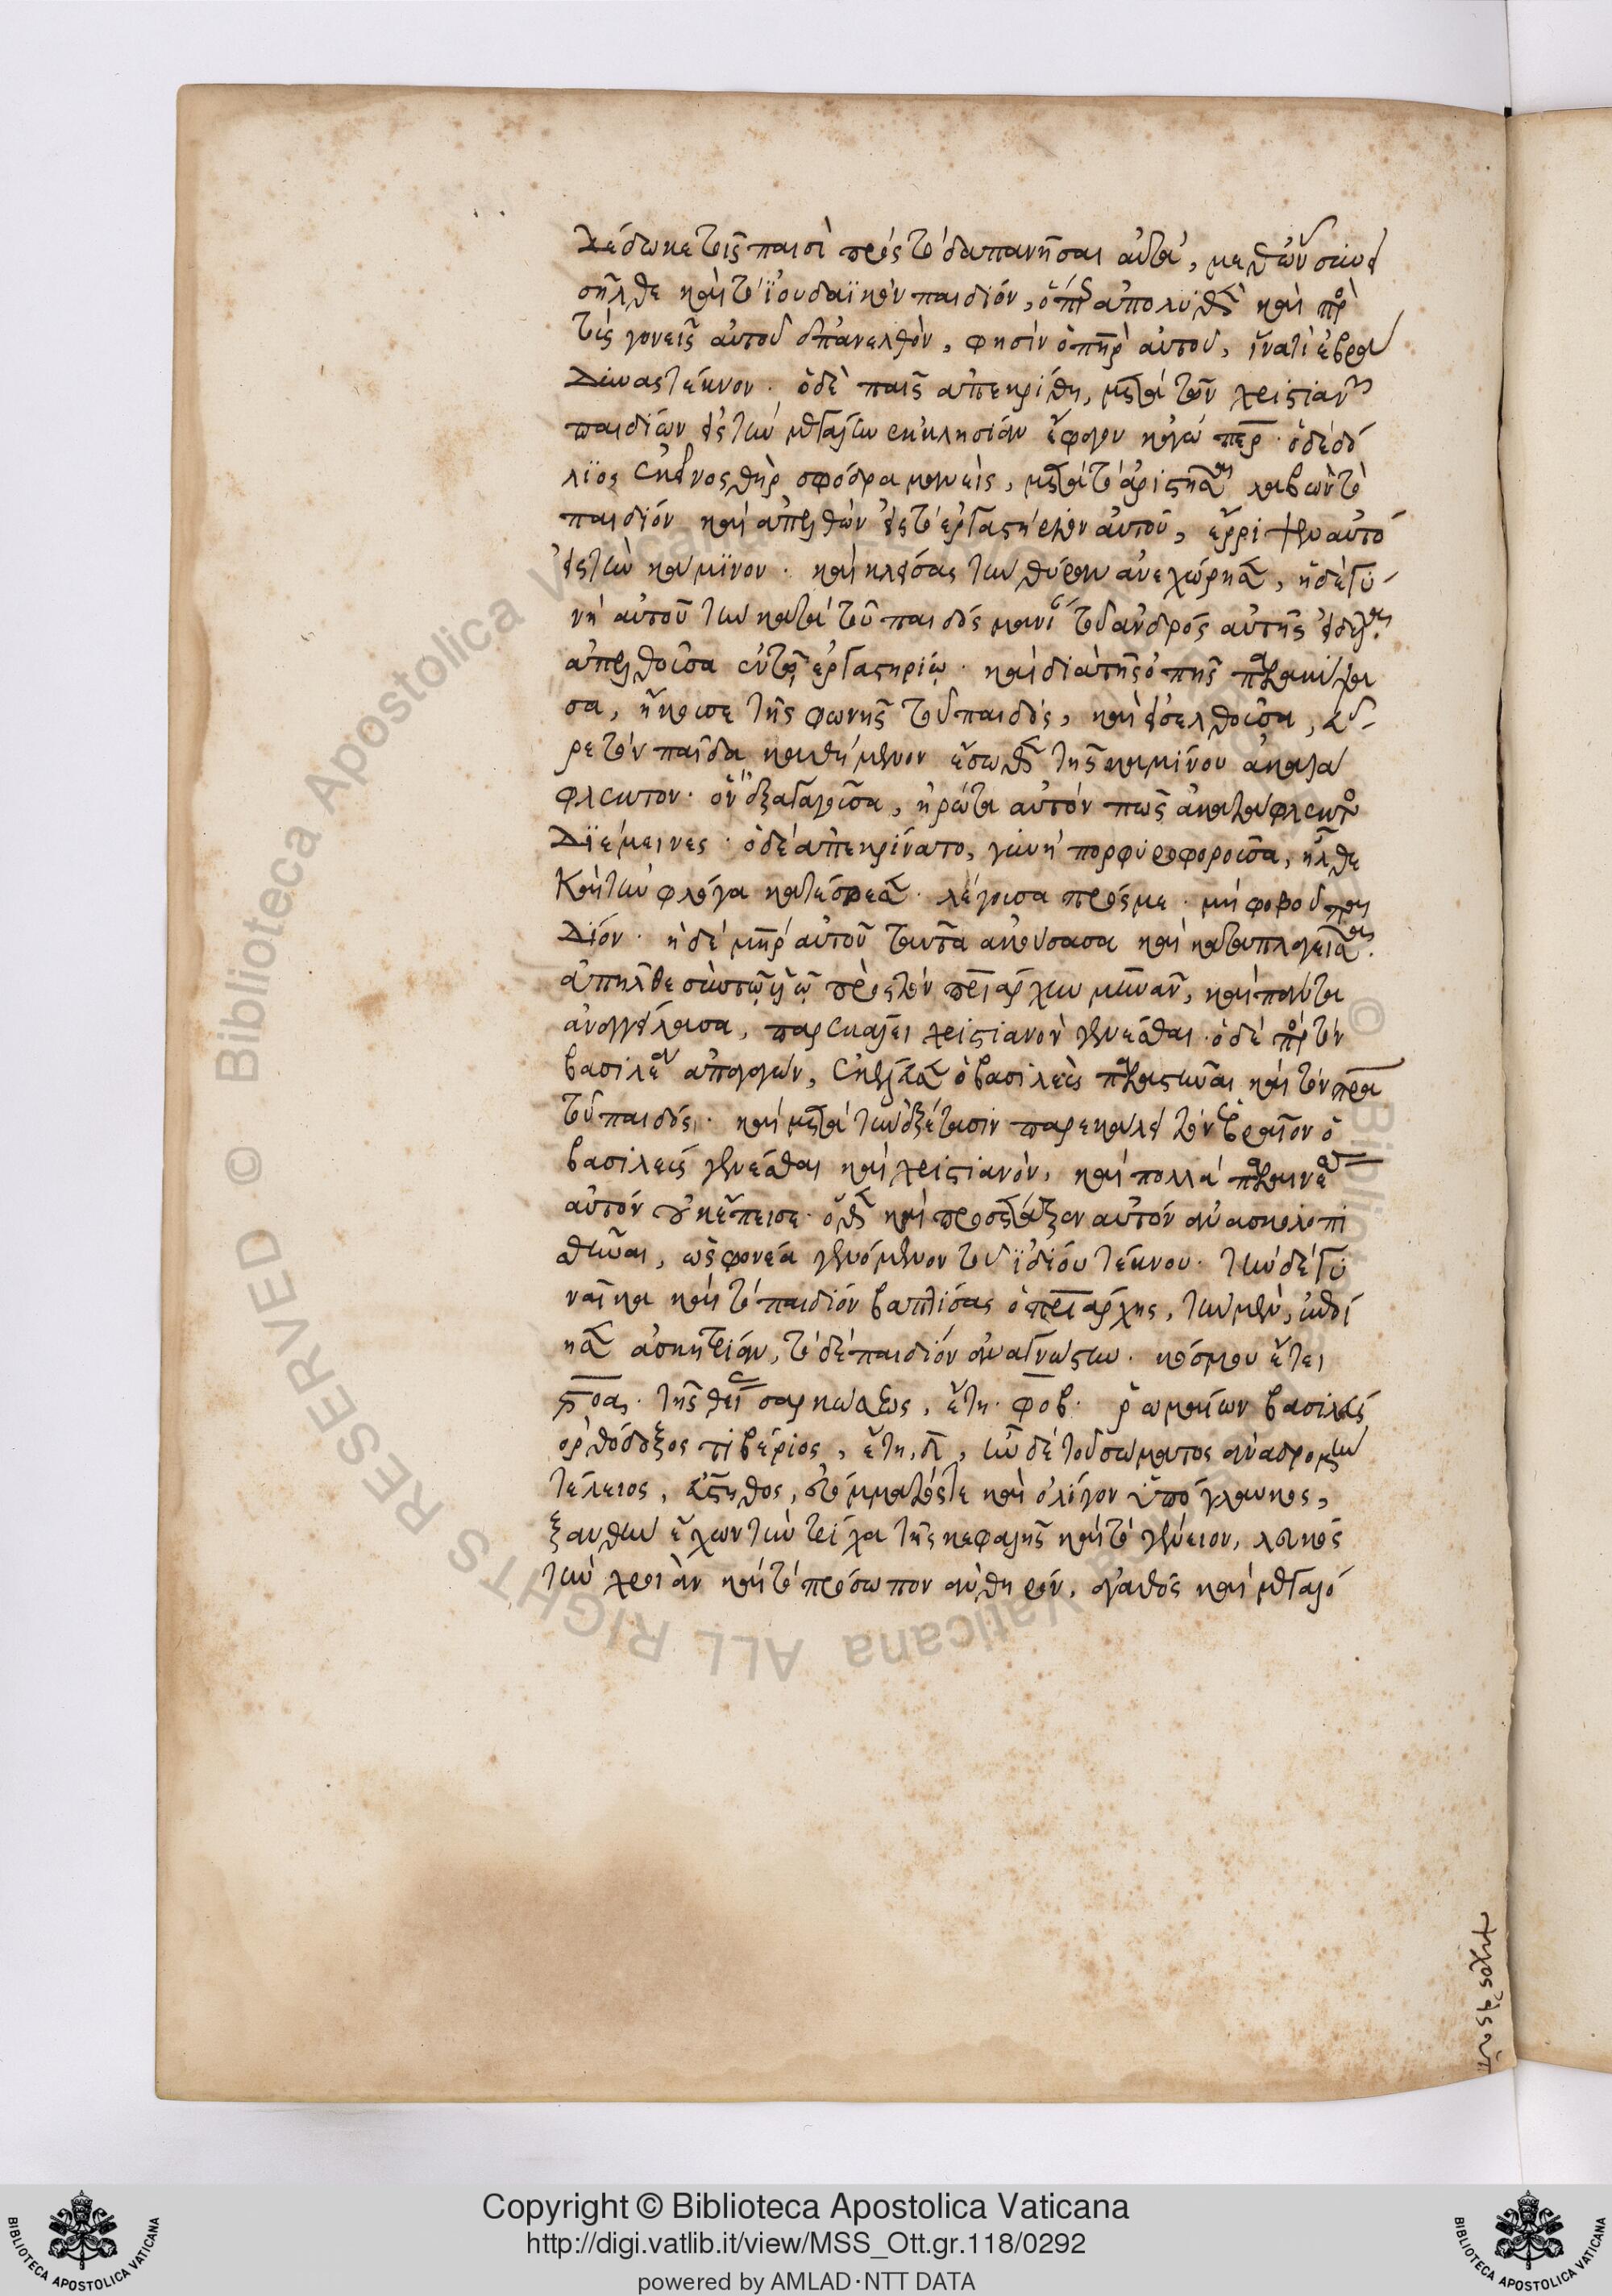 δέδωκε τοῖς παισὶ πρὸς τὸ δαπανῆσαι αὐτά, μεθ' ὧν συνει
σῆλθε καὶ τὸ ϊουδαϊκὸν παιδίον, ὅπερ ἀπολυθὲν καὶ πρὸς
τοὺς γονεῖς αὐτοῦ ἐπανελθὸν, φησὶν ὁ πηρ αὐτοῦ, ἵνα τί ἐβρα
δύνας τέκνον. ὁ δὲ παῖς ἀπεκρίθη, μετὰ τῶν χριστιανῶν
παιδίων εἰς τὴν μεγάλην ἐκκλησίαν ἔφαγον κἀγὼ περ. ὁ δὲ δό
λϊος ἐκεῖνος θὴρ σφόδρα μανεὶς, μετὰ τὸ ἀριστῆσαι λαβὼν τὸ
παιδίον καὶ ἀπελθὼν εἰς τὸ ἐργαστήριον αὐτοῦ, ἔρριψεν αὐτὸ
εἰς τὴν κάμϊνον. καὶ κλείσας τὴν θύραν ἀνεχώρησε, ἡ δὲ γυ
νὴ αὐτοῦ τὴν κατὰ τοῦ παιδὸς μανίαν τοῦ ἀνδρὸς αὐτῆς
ἀπελθοῦσα ἐν τῷ ἐργαστηρίῳ. καὶ διὰ τῆς ὀπῆς παρακύψα
σα, ἤκουσε τῆς φωνῆς τοῦ παιδὸς, καὶ εἰσελθοῦσα, εὗ
ρε τὸν παῖδα καθήμενον ἔσωθεν τῆς καμίνου ἀκατά
φλεκτον. ὃν ἐξαγαγοῦσα, ἠρώτα αὐτὸν πῶς ἀκατάφλεκτος
διέμεινες. ὁ δὲ ἀπεκρίνατο, γυνὴ πορφυροφοροῦσα, ἦλθε
καὶ τὴν φλόγα κατέσβεσε. λέγουσα πρός με. μὴ φοβοῦ παι
δίον. ἡ δὲ μηρ αὐτοῦ ταῦτα ἀκούσασα καὶ καταπλαγεῖσα
ἀπῆλθε σὺν τῷ υἱῷ πρὸς τὸν πριάρχην μηνᾶν, καὶ πάντα
ἀναγγείλασα, παρεκάλει χριστιανὸν γενέσθαι. ὁ δὲ πρὸς τὸν
βασιλέα ἀπαγαγὼν, ἐκέλευσε ὁ βασιλεὺς παραστῆναι καὶ τὸν πρα
τοῦ παιδός. καὶ μετὰ τὴν ἐξέτασιν παρεκάλει τὸν ἑβραῖον ὁ
βασιλεὺς γενέσθαι καὶ χριστιανὸν, καὶ πολλὰ παραινέσας
αὐτὸν οὐκ ἔπεισε. ὅθεν καὶ προσέταξεν αὐτὸν ἀνασκολοπι
σθῆναι, ὡς φονέα γενόμενον τοῦ ϊδίου τέκνου. τὴν δὲ γυ
ναῖκα καὶ τὸ παιδίον βαπτίσας ὁ πριάρχης, τὴν μὲν, ἐποί
ησε ἀσκητρίαν, τὸ δὲ παιδίον ἀναγνώστην. κόσμου ἔτει
ςοα. τῆς θείας σαρκώσεως, ἔτη. φοβ. ῥωμαίων βασιλεὺς
ὀρθόδοξος τιβέριος, ἔτη, δ, ἦν δὲ τοῦ σώματος ἀναδρομὴν
τέλειος, εὔστηθος, στόμματός τε καὶ ὀλίγον ὑπόγλαυκος,
ξανθὴν ἔχων τὴν τρίχα τῆς κεφαλῆς καὶ τὸ γένειον, λευκὸς
τὴν χροιὰν καὶ τὸ πρόσωπον ἀνθηρόν, ἀγαθὸς καὶ μεγαλό
Copyright © Biblioteca Apostolica Vaticana
http://digi.vatlib.it/view/MSS_Ott.gr.118/0292
powered by AMLAD·NTT DATA